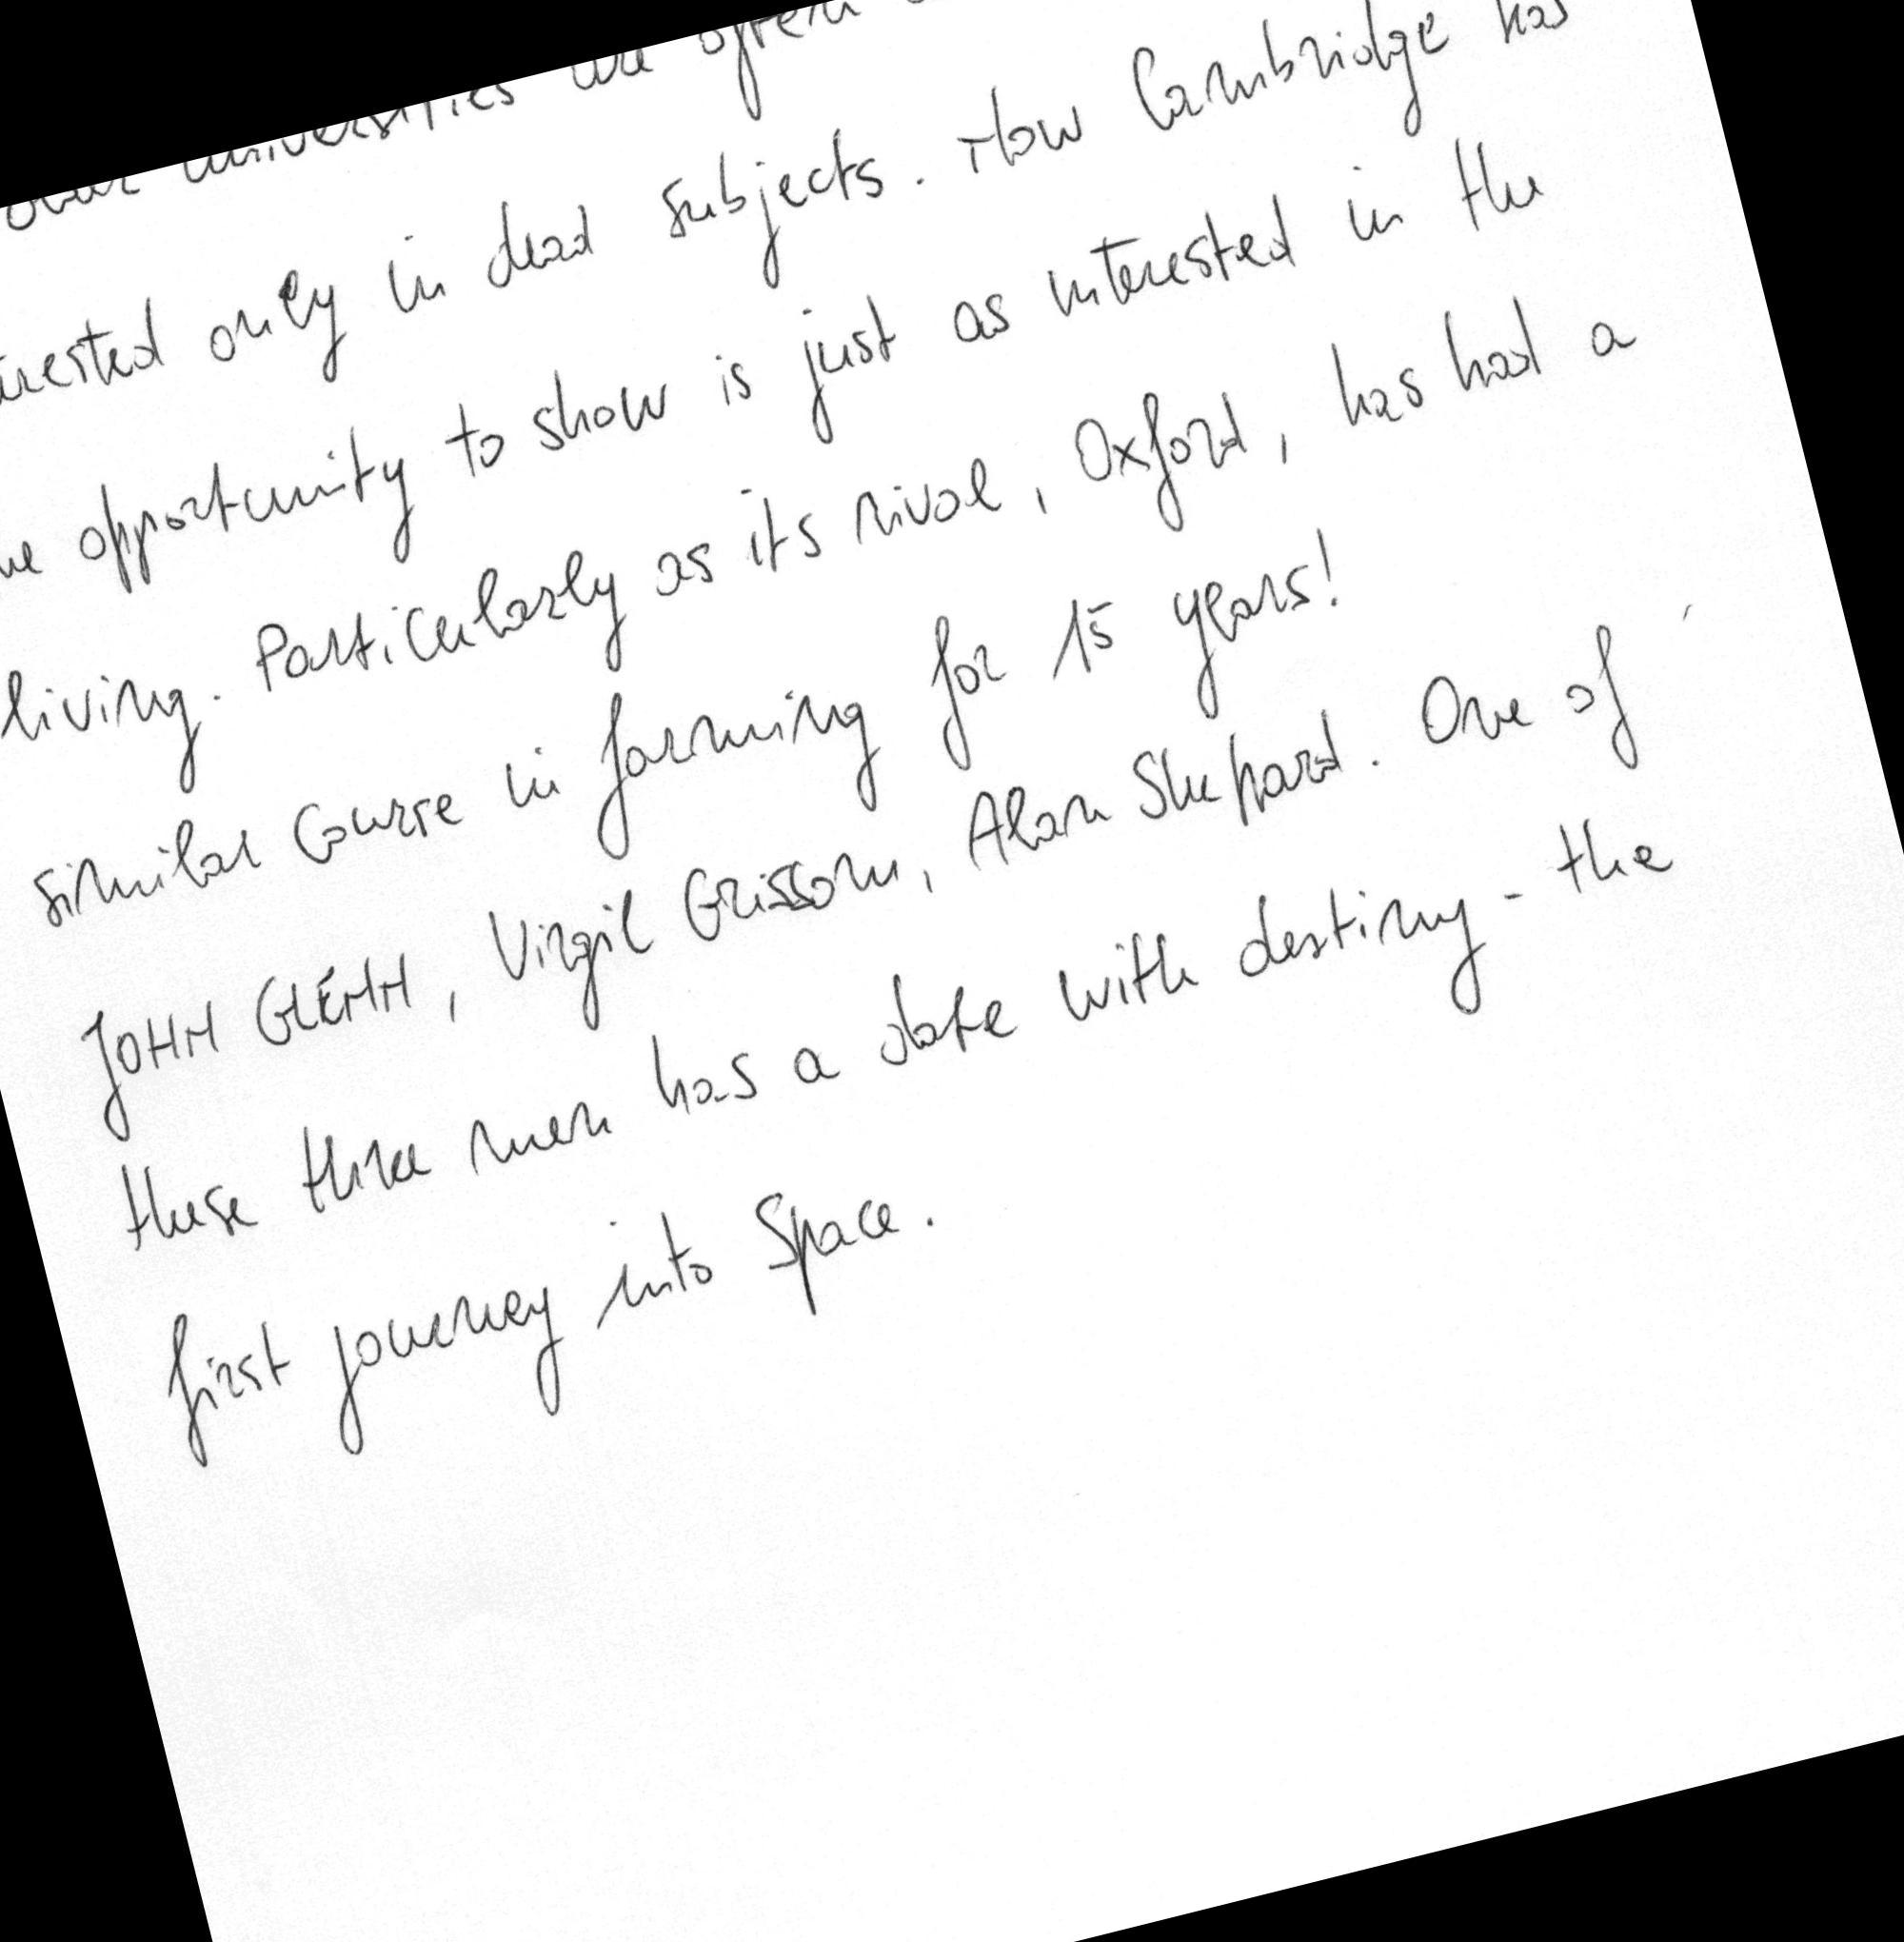 universities are often
only in dead subjects. How Cambridge has
opportunity to show is just as interested in the
living. Particularly as its rival, Oxford, has had a
similar Course in farming for 15 years!
JOHN GLENN, Virgil Grissom, Alan Shepard. One of
these three men has a date with destiny - the
first journey into Space.